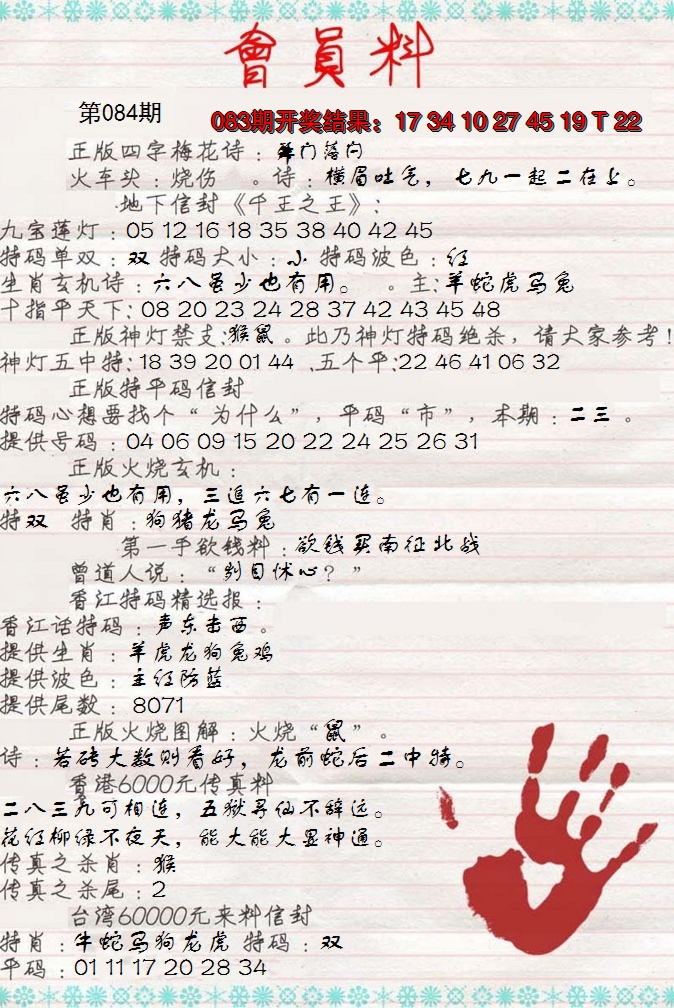 會員料
第084期
083期开奖结果：17 34 10 27 45 19 T 22
正版四字梅花诗：门落闩
火车头：烧伤 。诗：横眉吐气，七九一起二在上。
地下信封《千王之王》：
九宝莲灯：05 12 16 18 35 38 40 42 45
特码单双：双 特码大小：小 特码波色：红
生肖玄机诗：六八虽少也有用。 。主：羊蛇虎马兔
十指平天下：08 20 23 24 28 37 42 43 45 48
正版神灯禁支：猴鼠。此乃神灯特码绝杀，请大家参考！
神灯五中特：18 39 20 01 44 、五个平：22 46 41 06 32
正版特平码信封
特码心想要找个“为什么”，平码“市”，本期：二三。
提供号码：04 06 09 15 20 22 24 25 26 31
正版火烧玄机：
六八虽少也有用，三追六七有一连。
特双 特肖：狗猪龙马兔
第一手欲钱料：欲钱买南征北战
曾道人说：“刿目怵心？”
香江特码精选报：
香江话特码：声东击西。
提供生肖：羊虎龙狗兔鸡
提供波色：主红防蓝
提供尾数：8071
正版火烧图解：火烧“鼠”。
诗：若砖大数则看好，龙前蛇后二中特。
香港6000元传真料
二八三九可相连，五狱寻仙不辞远。
花红柳绿不夜天，能大能大显神通。
传真之杀肖：猴
传真之杀尾：2
台湾60000元来料信封
特肖：牛蛇马狗龙虎 特码：双
平码：01 11 17 20 28 34